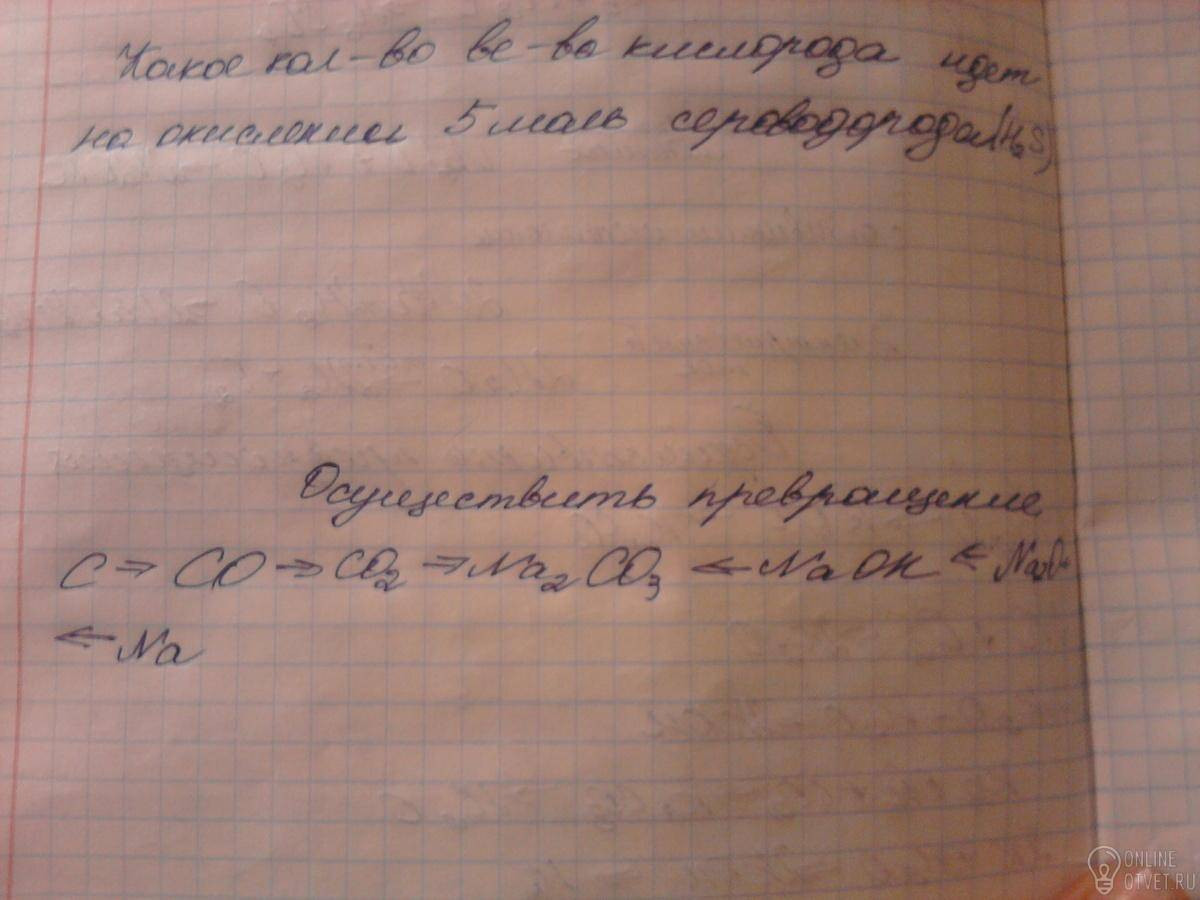 Какое кол-во ве-ва кислорода идет
на окисление 5 моль сероводорода (H₂S)
Осуществить превращение
C → CO → CO₂ → Na₂CO₃ ← NaOH ←
← Na
ONLINE
OTVET.RU